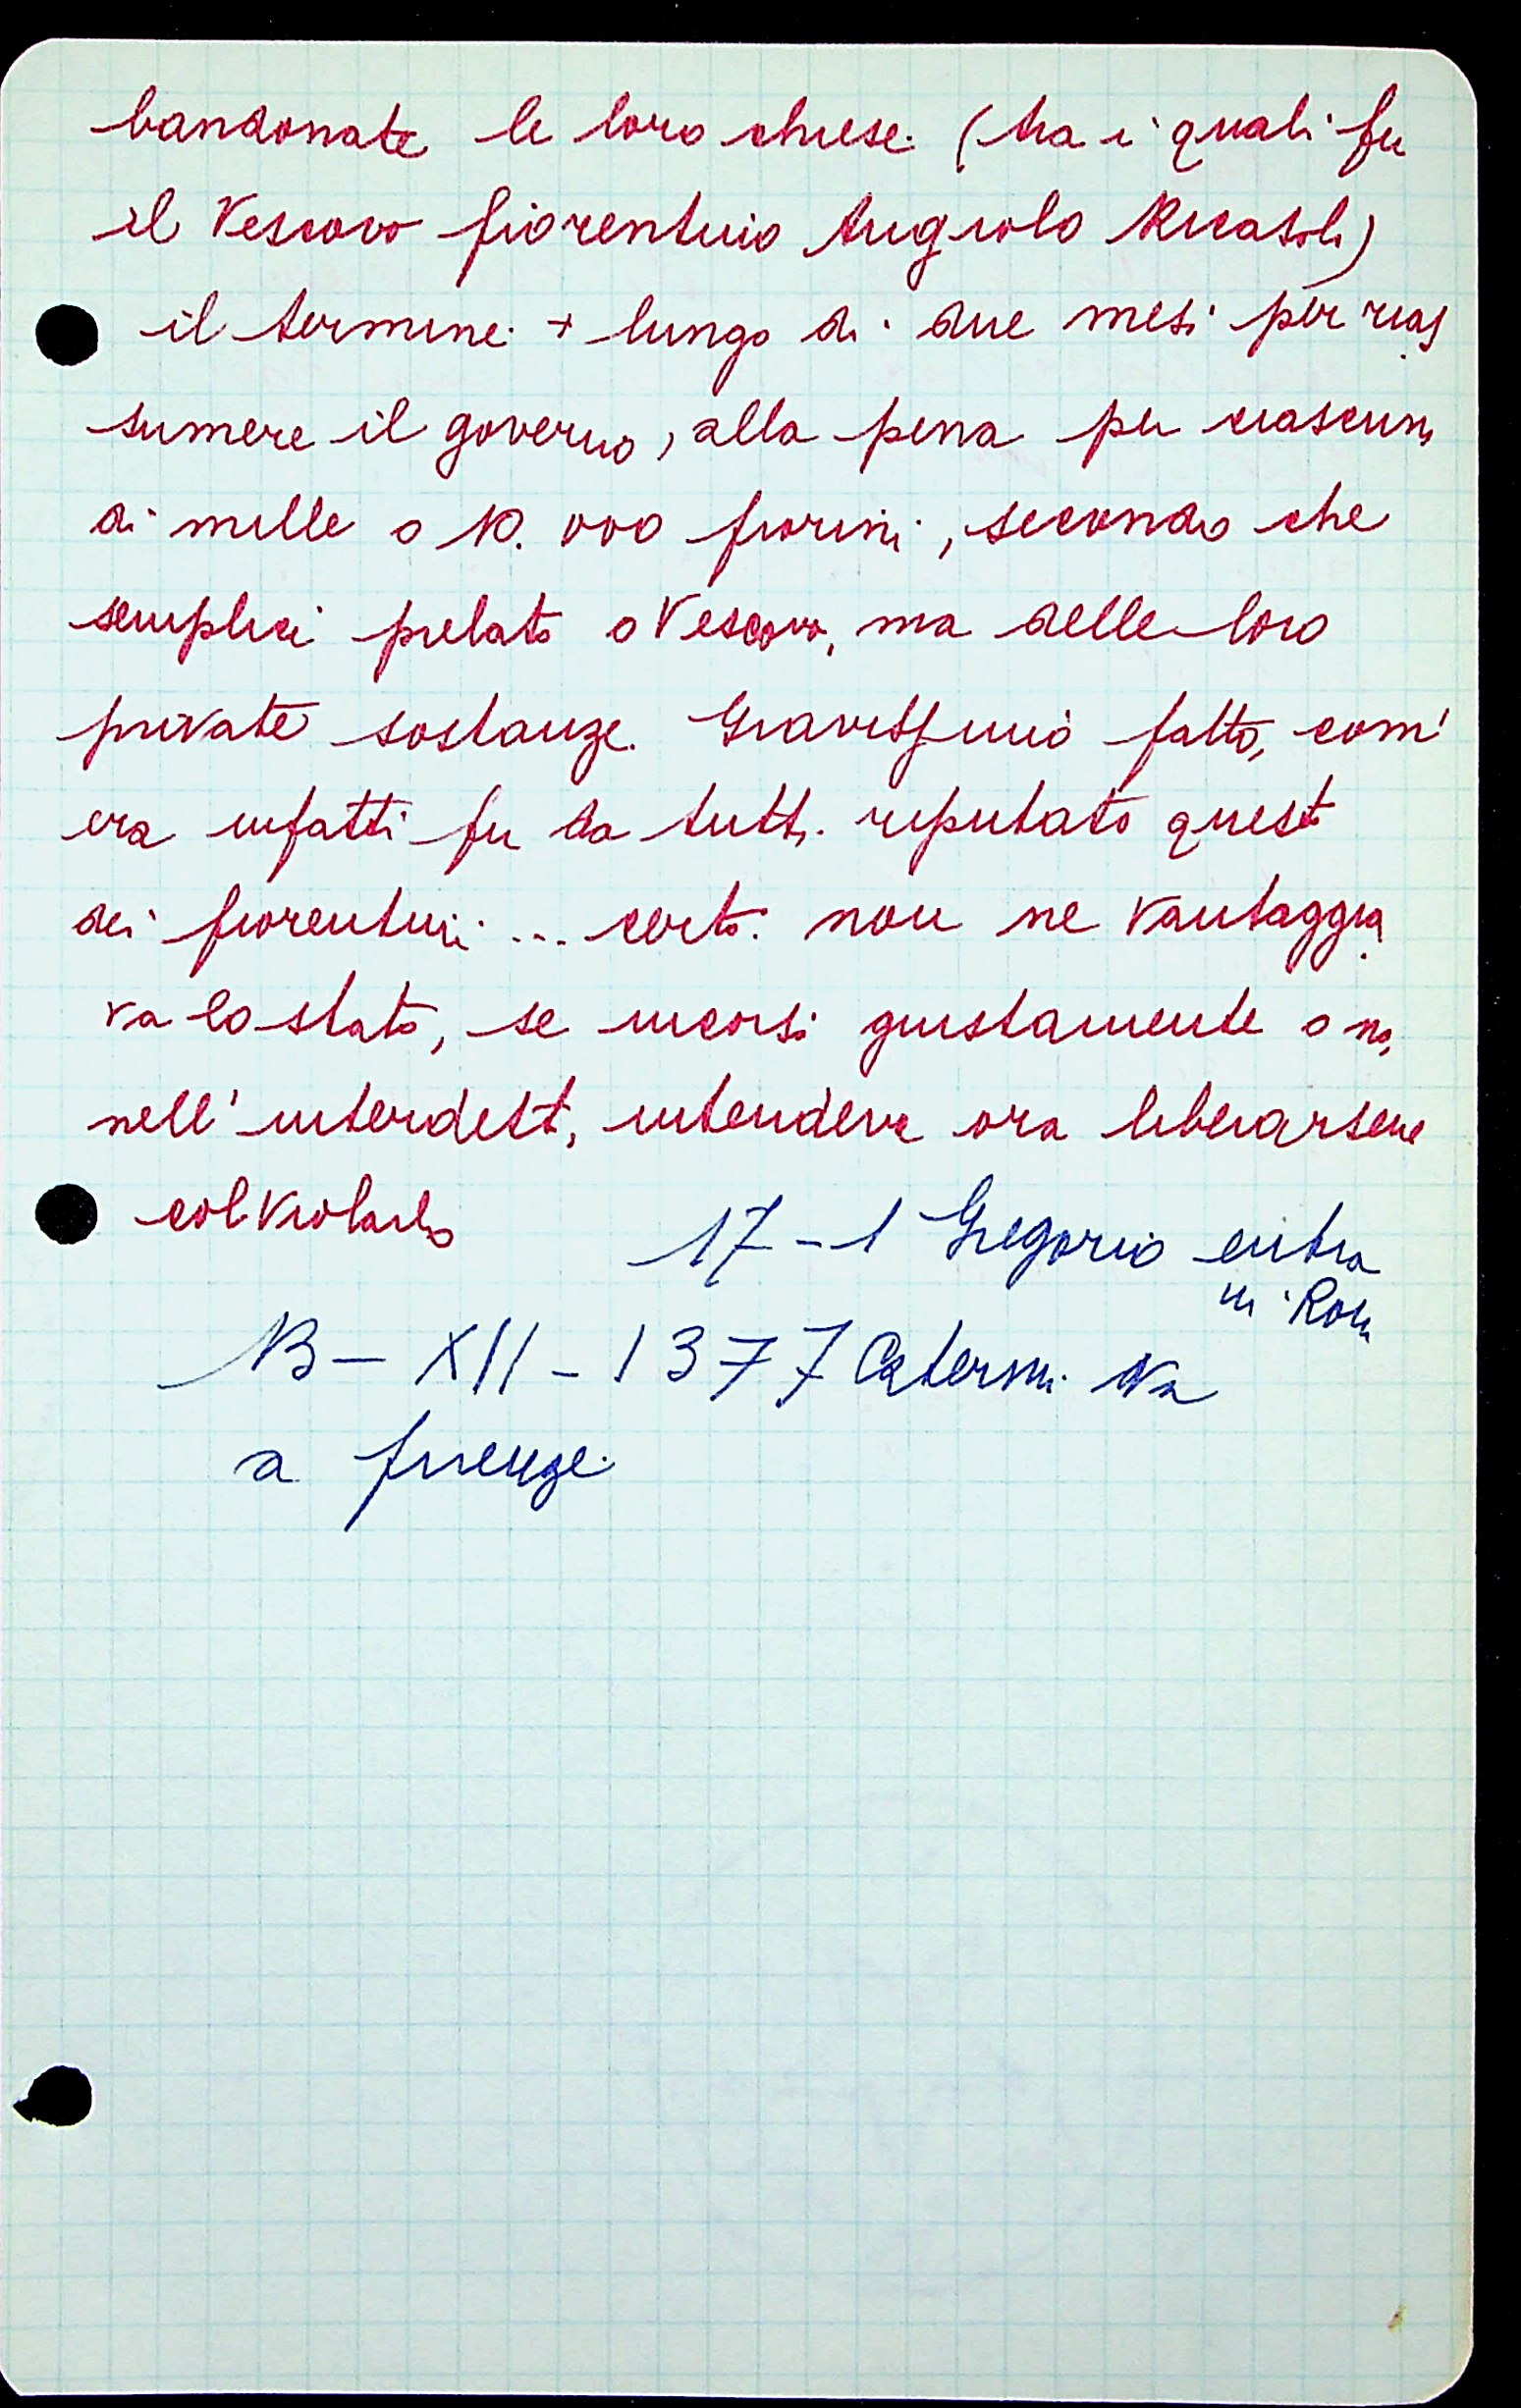 bandonate le loro chiese (tra i quali fu
il Vescovo fiorentino Angiolo Ricasoli)
il termine + lungo di due mesi per rias
sumere il governo, alla pena per ciascuno
di mille o 10.000 fiorini, secondo che
semplici prelato o Vescovo, ma delle loro
private sostanze. Gravissimo fatto, com'
era infatti fu da tutti reputato questo
dei fiorentini ... certo non ne vantaggia
va lo stato, se incorsi giustamente o no,
nell'interdetto, intendeva ora liberarsene
col violarlo
17-1 Gregorio entra
in Roma
13-XII-1377 Caterina va
a firenze.